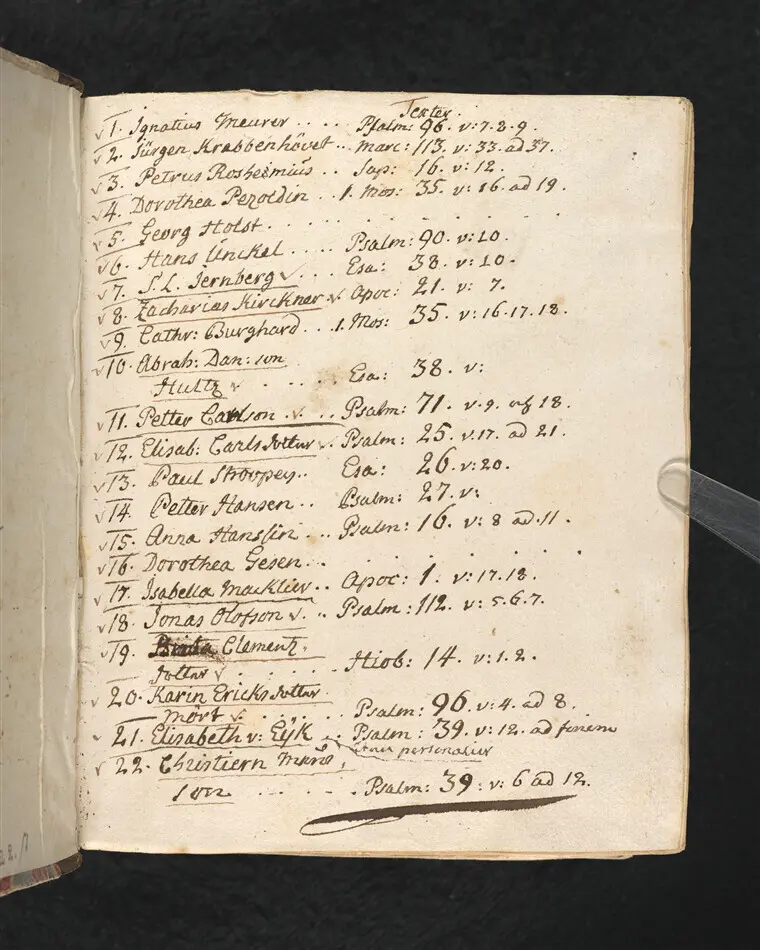 Texter.
√ 1. Ignatius Meurer .... Psalm: 96. v: 7. 8. 9.
√ 2. Jürgen Krabbenhövet .. Marc: 113. v: 33. ad 37.
√ 3. Petrus Rosheimius .. Sap: 16. v: 12.
√ 4. Dorothea Pezoldin .. 1. Mos: 35. v: 16. ad 19.
5. Georg Holst. . . . . . . . .
√ 6. Hans Unckel .... Psalm: 90. v: 10.
√ 7. S. L. Jernberg √. ... Esa: 38. v: 10.
√ 8. Zacharias Kirckner √. Apoc: 21. v: 7.
√ 9. Cathr: Burghard ... 1. Mos: 35. v: 16. 17. 18.
√ 10. Abrah: Dan: son
Hultz √ . . . . . Esa: 38. v:
√ 11. Petter Carlson .. √. .. Psalm: 71. v. 9. och 18.
√ 12. Elisab: Carls dotter √. Psalm: 25. v. 17. ad 21.
√ 13. Paul Strooper .. Esa: 26. v: 20.
√ 14. Petter Hansen .. Psalm: 27. v:
√ 15. Anna Hanssin ... Psalm: 16. v: 8 ad. 11.
√ 16. Dorothea Gesen . . . . . . . .
√ 17. Isabella Macklier .. Apoc: 1. v: 17. 18.
√ 18. Jonas Olofson √. .. Psalm: 112. v: 5. 6. 7.
√ 19. Clementz
dotter √ . . . . . Hiob: 14. v: 1. 2.
√ 20. Karin Ericks dotter
Mört √. . . . . Psalm: 96. v: 4. ad 8.
√ 21. Elisabeth v: Eÿk .. Psalm: 39. v: 12. ad finem
personalier
√ 22. Christiern Måns,
son . . . . . . Psalm: 39: v: 6 ad 12.